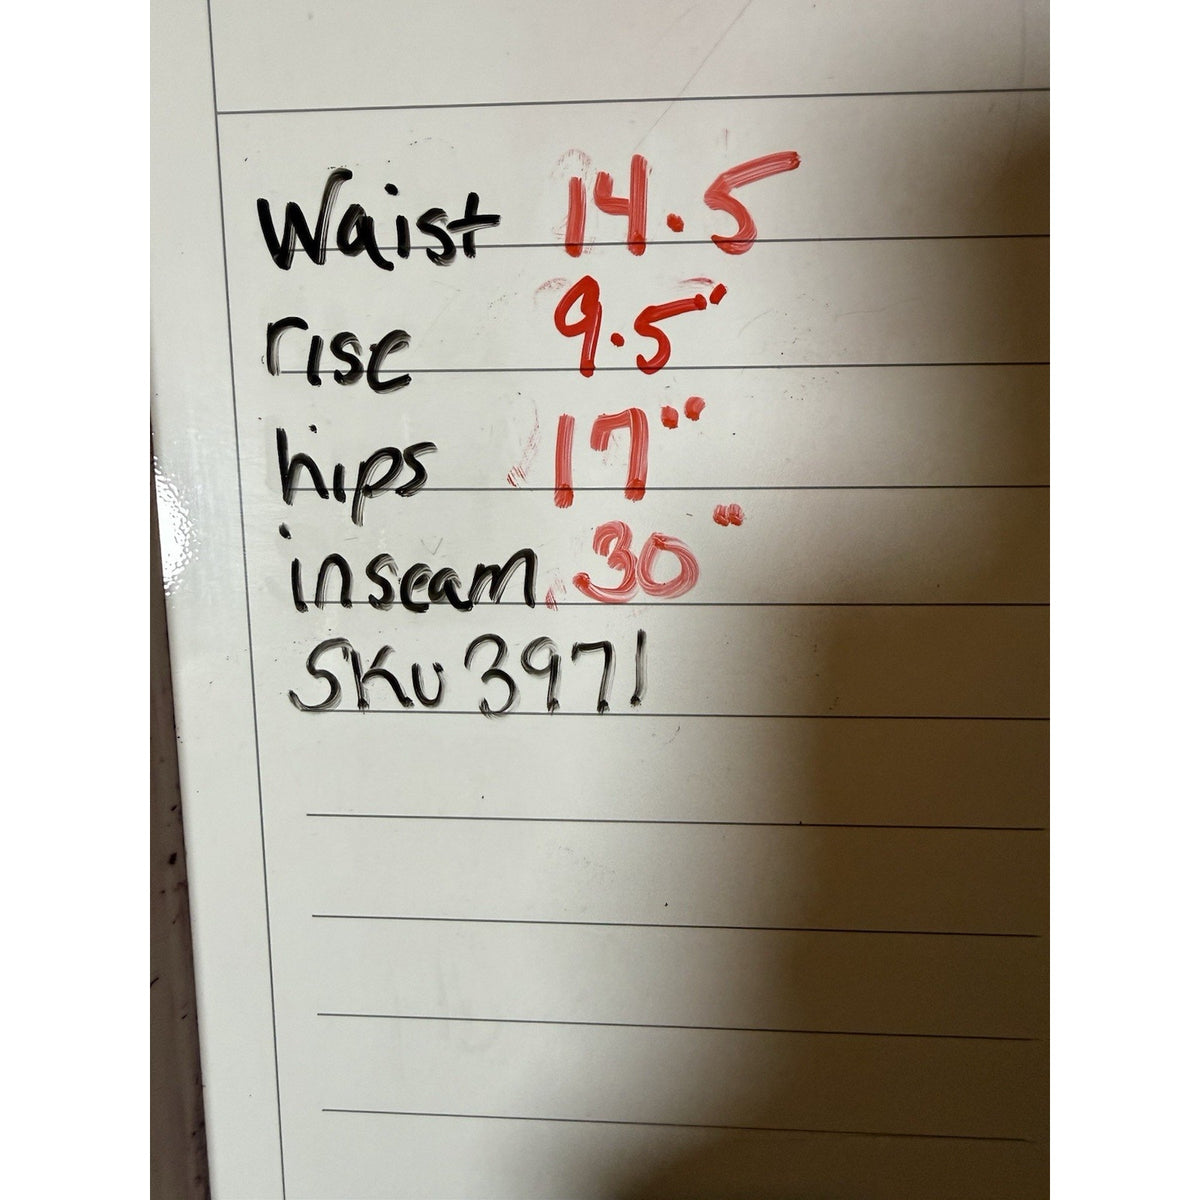 Waist 14.5
rise 9.5"
hips 17"
inseam 30"
SKU 3971